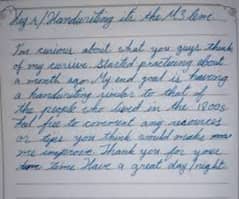 Hey r/Handwriting its the M3 here
I'm curious about what you guys think
of my cursive. Started practicing about
a month ago. My end goal is having
a handwriting similar to that of
the people who lived in the 1800s
feel free to comment any resources
or tips you think would make
me improve. Thank you for your
time Have a great day/night